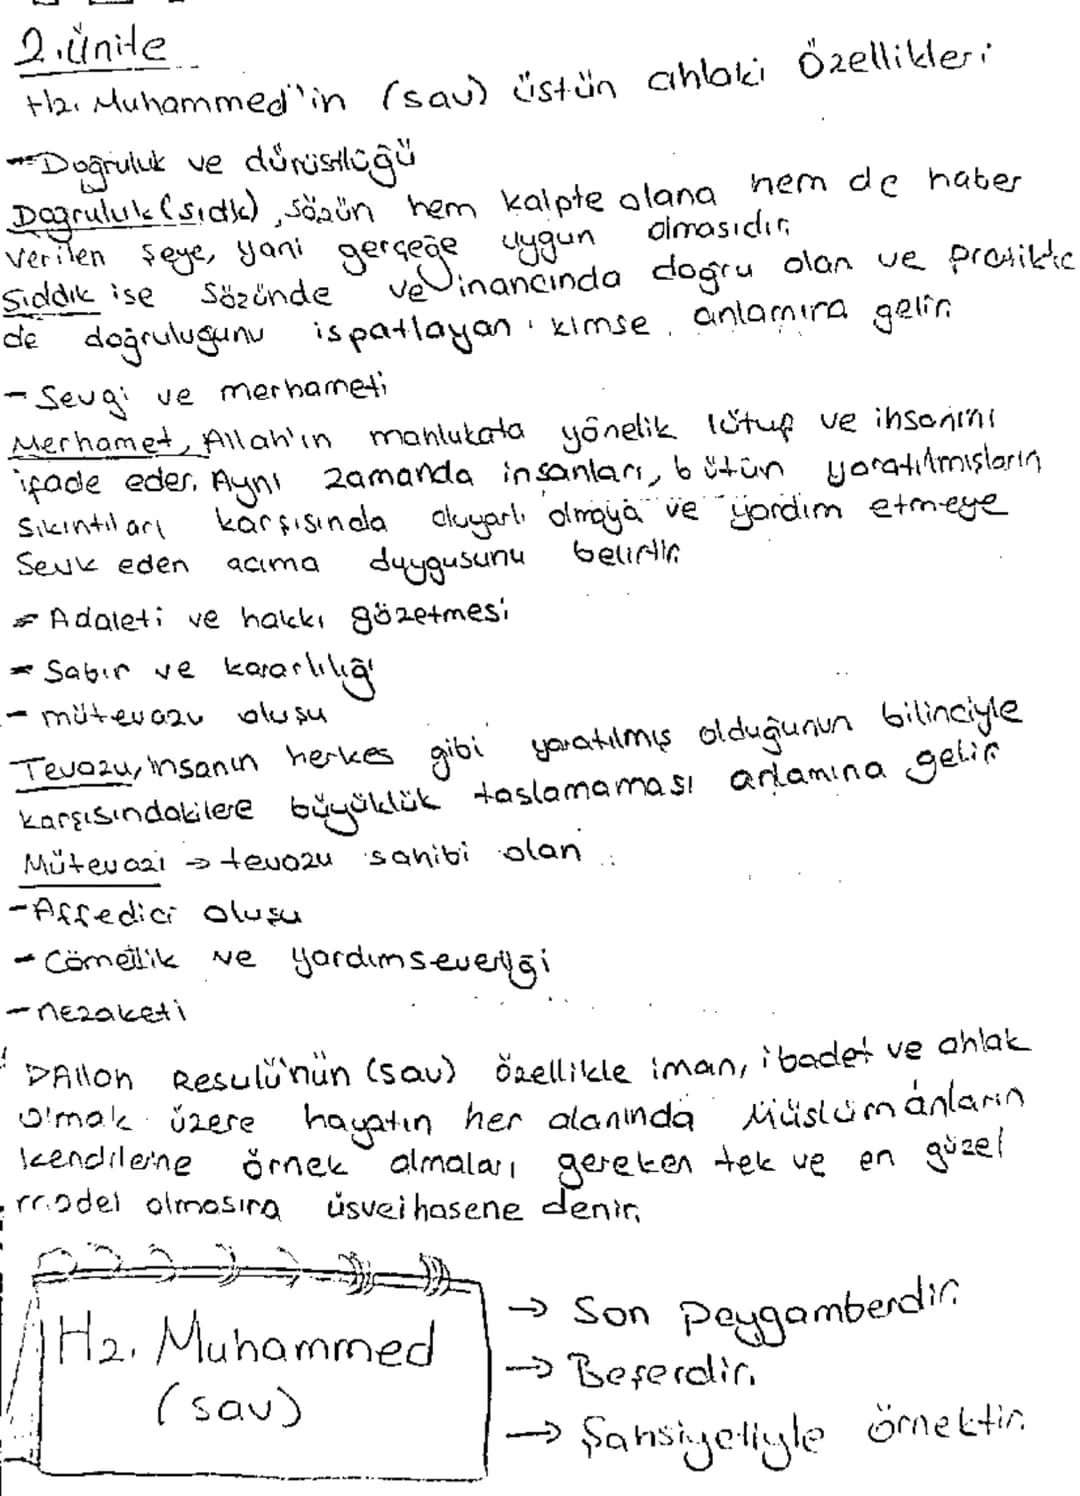 2.ünite
Hz. Muhammed'in (sav) üstün ahlaki Özellikleri
- Doğruluk ve dürüstlüğü
Doğruluk (sıdk), sözün hem kalpte olana hem de haber
verilen şeye, yani gerçeğe uygun olmasıdır.
Sıddık ise sözünde ve inancında doğru olan ve pratikte
de doğruluğunu ispatlayan kimse anlamına gelir.
- Sevgi ve merhameti
Merhamet, Allah'ın mahlukata yönelik lütuf ve ihsanını
ifade eder. Aynı zamanda insanları, bütün yaratılmışların
sıkıntıları karşısında duyarlı olmaya ve yardım etmeye
Sevk eden acıma duygusunu belirtir.
- Adaleti ve hakkı gözetmesi
- Sabır ve kararlılığı
- mütevazu oluşu
Tevazu, insanın herkes gibi yaratılmış olduğunun bilinciyle
karşısındakilere büyüklük taslamaması anlamına gelir.
Mütevazi → tevazu sahibi olan
- Affedici oluşu
- Cömertlik ve yardımseverliği
- nezaketi
Allah Resulü'nün (sav) özellikle iman, ibadet ve ahlak
olmak üzere hayatın her alanında Müslümanların
kendilerine örnek almaları gereken tek ve en güzel
model olmasına üsvei hasene denir.
Hz. Muhammed
(sav)
→ Son Peygamberdir.
→ Beşerdir.
→ Şahsiyetiyle örnektir.